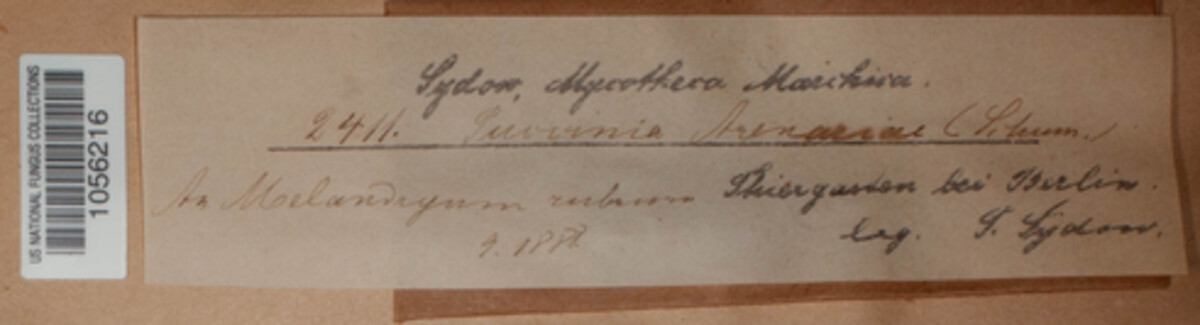 US NATIONAL FUNGUS COLLECTIONS
1056216
Sydow, Mycotheca Marchica.
2411. Puccinia Arenariae (Schum.)
An Melandryum rubrum Thiergarten bei Berlin.
9. 188
leg. P. Sydow.